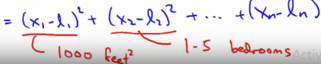 = (x₁-l₁)² + (x₂-l₂)² + ... + (xₙ-lₙ)²
1000 feet² 1-5 bedrooms